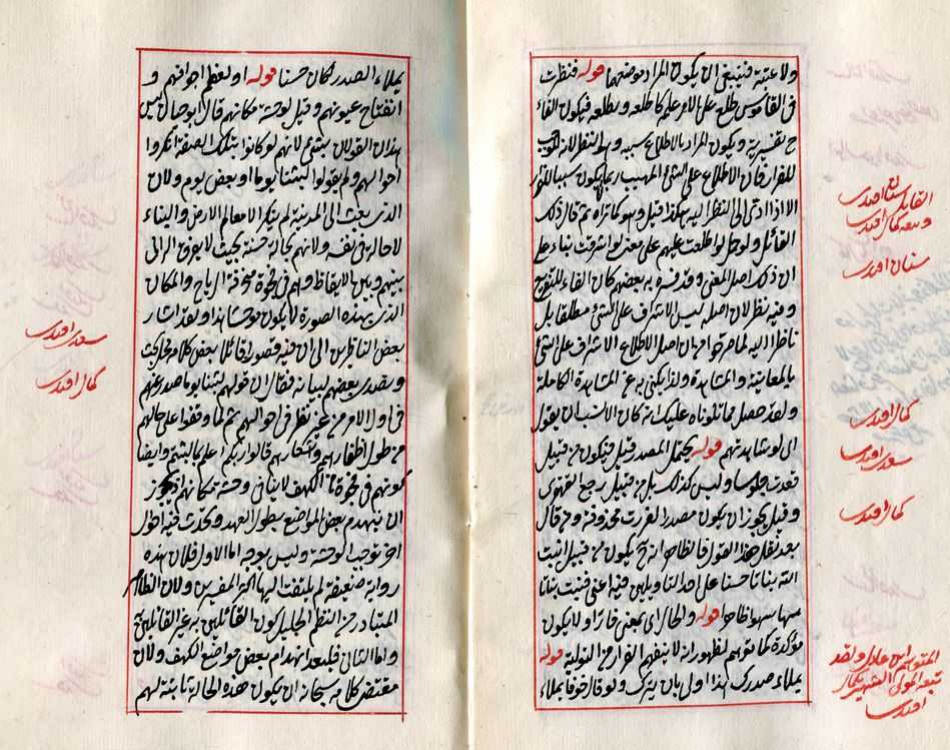 ولا عتبة فينبغي ان يكون المراد موضعهما قوله فنظرت
في القاموس طلع على الامر علمه كاطلعه وتطلعه فيكون الفاء
ح تفسيرية ويكون المراد بالاطلاع سببه وهو النظر لانه الموجب
للفرار فان الاطلاع على الشئ المهيب ربما يكون سببا للفرار
الا اذا ادى الى النظر اليه هكذا قيل وهو كما تراه ثم قال ذلك
القائل ولو حمل لو اطلعت عليهم على معنى لو اشرفت بناء على
ان ذلك اصل المعنى وقد فسره به بعضهم كان الفاء للتعقيب
وفيه نظر لان اصله ليس الاشراف على الشئ مطلقا بل
ناظرا اليه لما صرحوا به ان اصل الاطلاع الاشراف على الشئ
بالمعاينة والمشاهدة ولذا يكنى به عن المشاهدة الكاملة
ولقد حصل مما تلوناه عليك انه كان الانسب ان يقول
اى لو شاهدتهم قوله يحتمل المصدر قيل فيكون من قبيل
قعدت جلوسا وليس كذلك بل من قبيل رجع القهقرى
وقيل يجوز ان يكون مصدرا لفررت محذوفة ومن قال
بعد نقل هذا القول فالظاهر انه ح يكون من قبيل انبت
الله نباتا حسنا على احد التأويلين فيه اعني فنبت نباتا
سها سهوا ظاهرا قوله والحال اى بمعنى فارا ولا يكون
مؤكدة كما توهم لظهور انه لا يفهم الفرار من التولية قوله
يملاء صدرك هذا اولى بان يترك ولو قال خوفا يملاء
القائل سنان افندى
وتبعه كمال افندى
سنان افندى
كمال افندى
سعدى افندى
كمال افندى
المتوهم ابن عادل ولقد
تبعه المولى الشهير بكمال
افندى
يملاء الصدر لكان حسنا قوله او لعظم اجرامهم و
انفتاح عيونهم وقيل لوحشة مكانهم قال ابو حيان ليس
هذان القولان بشئ لانهم لو كانوا بتلك الصفة انكروا
احوالهم ولم يقولوا لبثنا يوما او بعض يوم ولان
الذى بعث الى المدينة لم ينكر الا معالم الارض والبناء
لا حاله في نفسه ولانهم بحالة حسنة بحيث لا يفرق الرائى
بينهم وبين الايقاظ وهم في فجوة تخرقه الرياح والمكان
الذى بهذه الصورة لا يكون موحشا هذا ولقد اشار
بعض الناظرين الى ان فيه قصورا قائلا بعض كلامه محل بحث
وتصدى بعضهم لبيانه فقال ان قولهم لبثنا يوما صدر عنهم
في اول الامر من غير نظر في احوالهم ثم لما وقفوا على حالهم
من طول اظفارهم واشعارهم قالوا ربكم اعلم بما لبثتم وايضا
كونهم في فجوة من الكهف لا ينافي وحشة مكانهم اذ يجوز
ان ينهدم بعض المواضع بطول العهد ويحدث فيه احوال
اخر توجب الوحشة وليس بوجه اما الاول فلان هذه
رواية ضعيفة لم يلتفت اليها اكثر المفسرين ولان الظاهر
المتبادر من النظم الجليل كون القائلين به غير القائلين
واما الثانى فلبعد انهدام بعض مواضع الكهف ولان
مقتضى كلامه سبحانه ان يكون هذه الحالة ثابتة لهم
سعدى افندى
كمال افندى